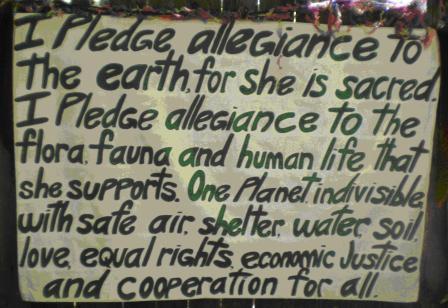 I Pledge allegiance to
the earth, for she is sacred.
I Pledge allegiance to the
flora, fauna and human life that
she supports. One Planet, indivisible,
with safe air, shelter, water, soil,
love, equal rights, economic Justice
and cooperation for all.